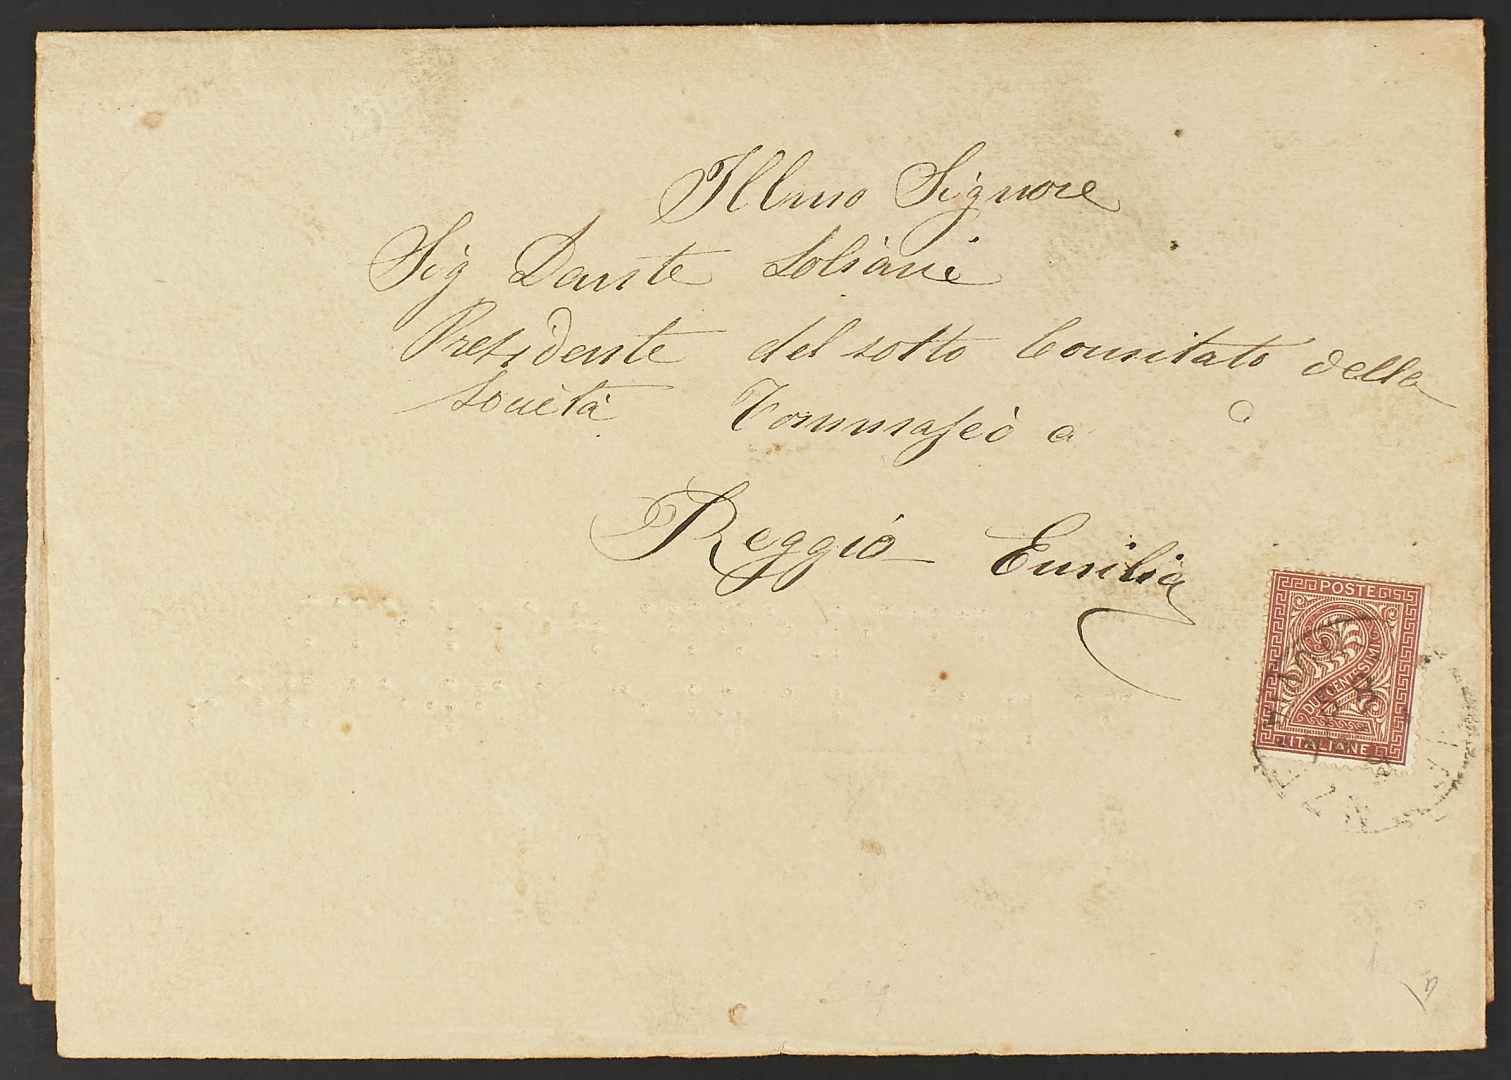 Illmo Signore
Sig Dante Soliani
Presidente del sotto Comitato della
Società Tommaseo a
Reggio Emilia
POSTE
DUE CENTESIMI
ITALIANE